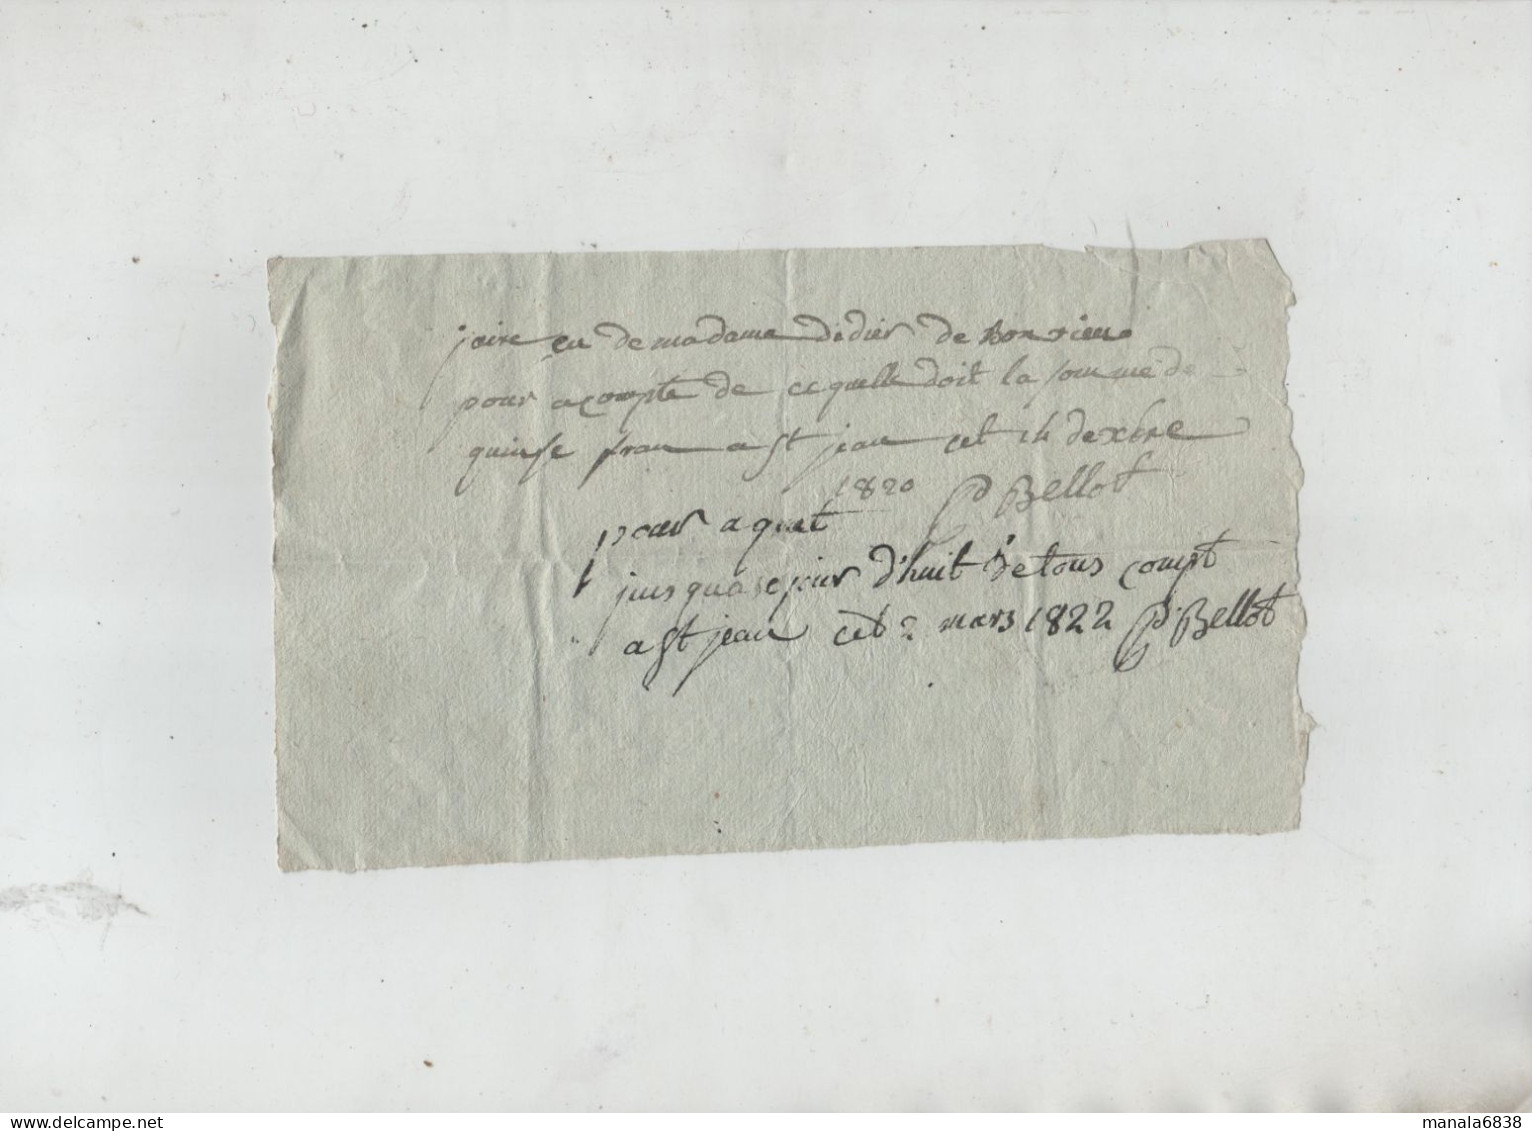 jaire cu de madame didier de Bonrieu
pour acompte de ce quelle doit la somme de
quinse fran a st jean cet 14 de xbre
1820 P Bellot
pour aquat
jusqua se jour d'huit de tous compt
a st jean cet 2 mars 1822 P Bellot
manala6838